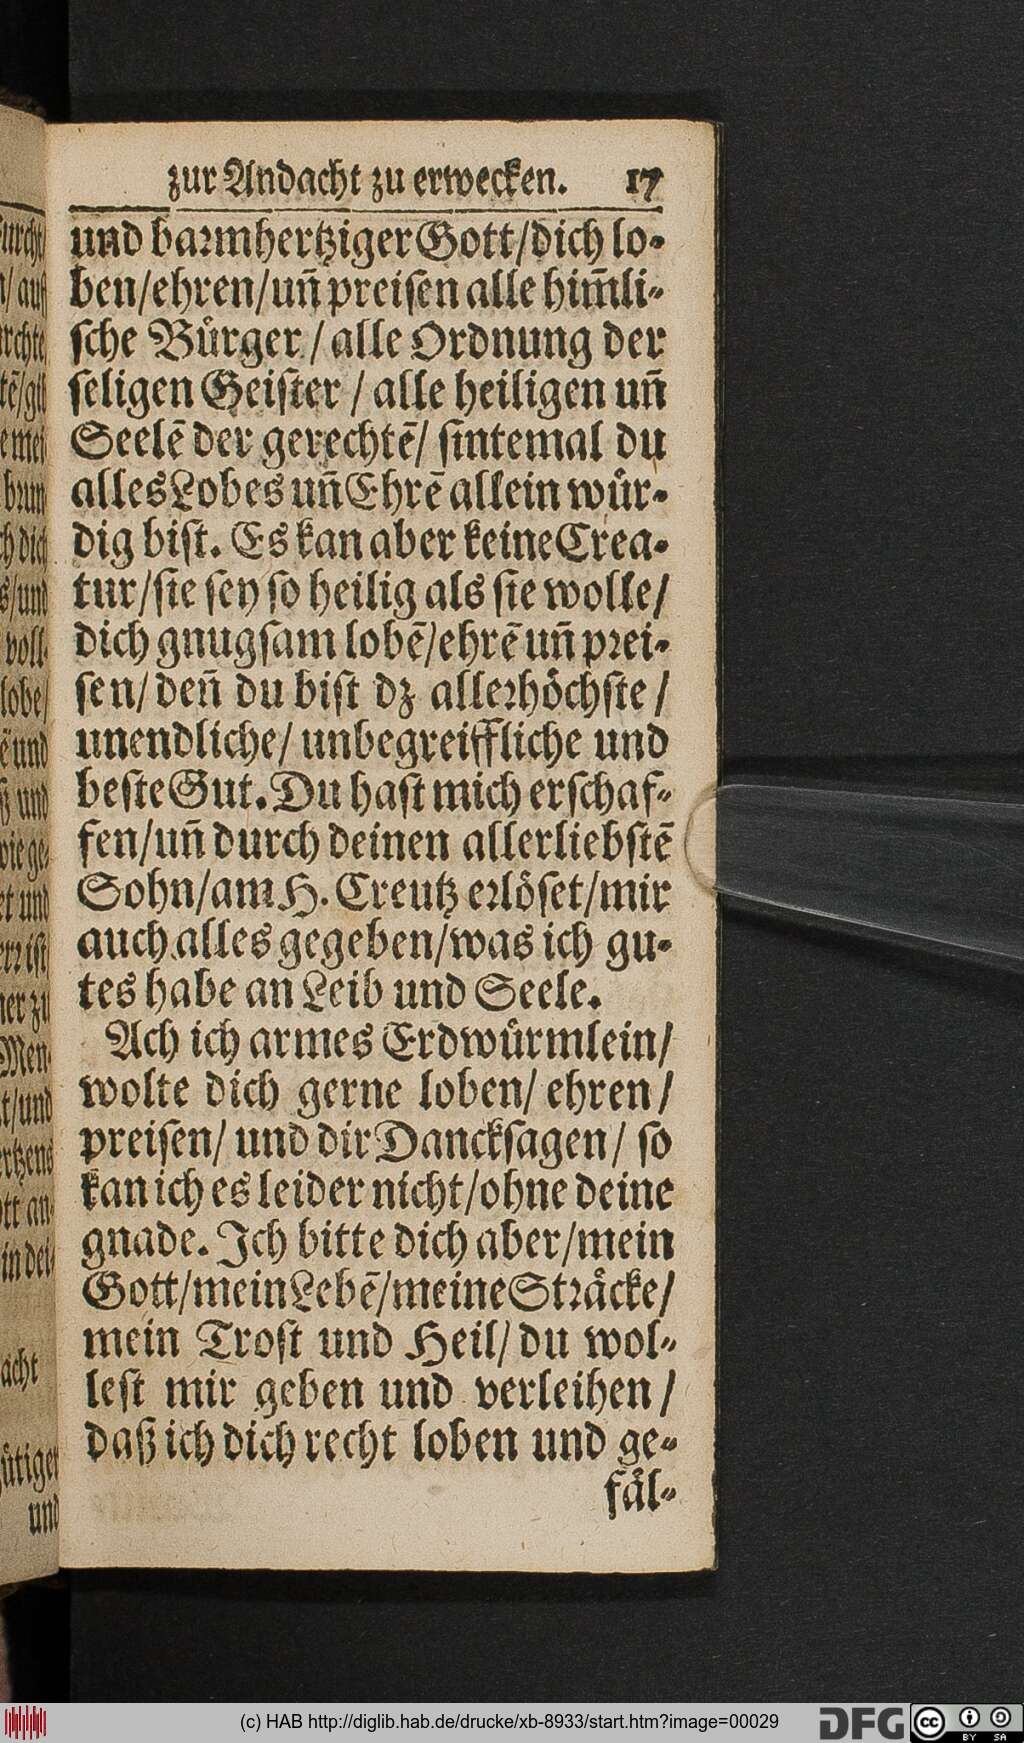 zur Andacht zu erwecken. 17
und barmhertziger Gott/dich lo-
ben/ehren/uñ preisen alle him̃li-
sche Bürger/alle Ordnung der
seligen Geister/alle heiligen uñ
Seelẽ der gerechtẽ/sintemal du
alles Lobes uñ Ehrẽ allein wür-
dig bist. Es kan aber keine Crea-
tur/sie sey so heilig als sie wolle/
dich gnugsam lobẽ/ehrẽ uñ prei-
sen/deñ du bist dz allerhöchste/
unendliche/unbegreiffliche und
beste Gut. Du hast mich erschaf-
fen/uñ durch deinen allerliebstẽ
Sohn/am H. Creutz erlöset/mir
auch alles gegeben/was ich gu-
tes habe an Leib und Seele.
Ach ich armes Erdwürmlein/
wolte dich gerne loben/ehren/
preisen/und dir Dancksagen/so
kan ich es leider nicht/ohne deine
gnade. Ich bitte dich aber/mein
Gott/mein Lebẽ/meine Sträcke/
mein Trost und Heil/du wol-
lest mir geben und verleihen/
daß ich dich recht loben und ge-
fäl-
(c) HAB http://diglib.hab.de/drucke/xb-8933/start.htm?image=00029
DFG
cc BY SA